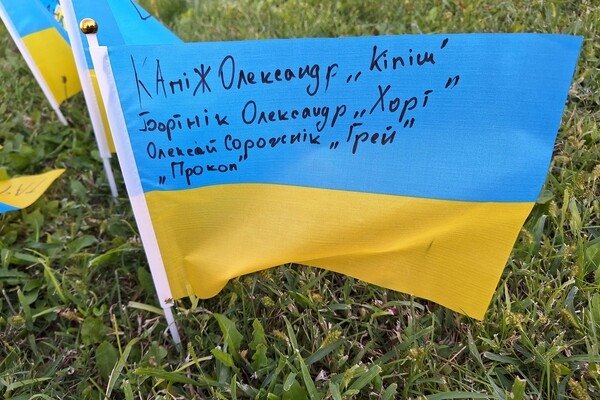 Каніж Олександр „Кіпіш"
Борінік Олександр „Хорі"
Олексай Сорожнік „Грей"
„Прокоп"